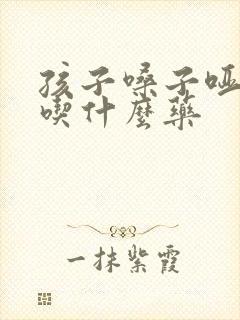 孩子嗓子哑
喫什麼藥
一抹紫霞